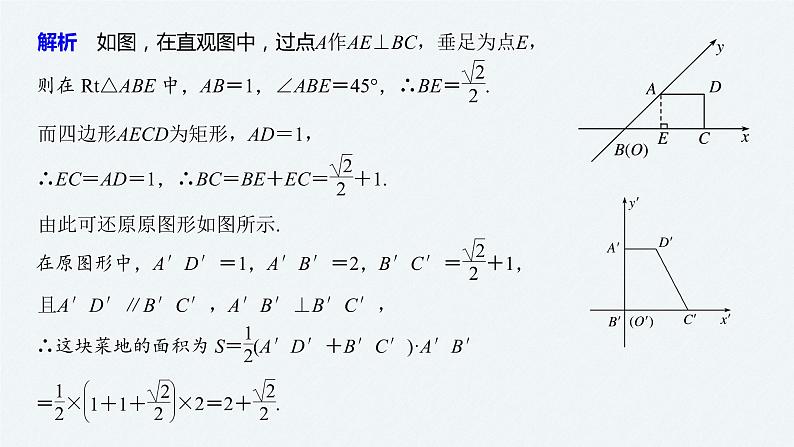 解析 如图，在直观图中，过点A作AE⊥BC，垂足为点E，
则在 Rt△ABE 中，AB＝1，∠ABE＝45°，∴BE＝√2/2.
而四边形AECD为矩形，AD＝1，
∴EC＝AD＝1，∴BC＝BE＋EC＝√2/2＋1.
由此可还原原图形如图所示.
在原图形中，A′D′＝1，A′B′＝2，B′C′＝√2/2＋1，
且A′D′∥B′C′，A′B′⊥B′C′，
∴这块菜地的面积为 S＝1/2(A′D′＋B′C′)·A′B′
＝1/2×(1＋1＋√2/2)×2＝2＋√2/2.
y
A D
E C x
B(O)
y′
A′ D′
B′ (O′) C′ x′